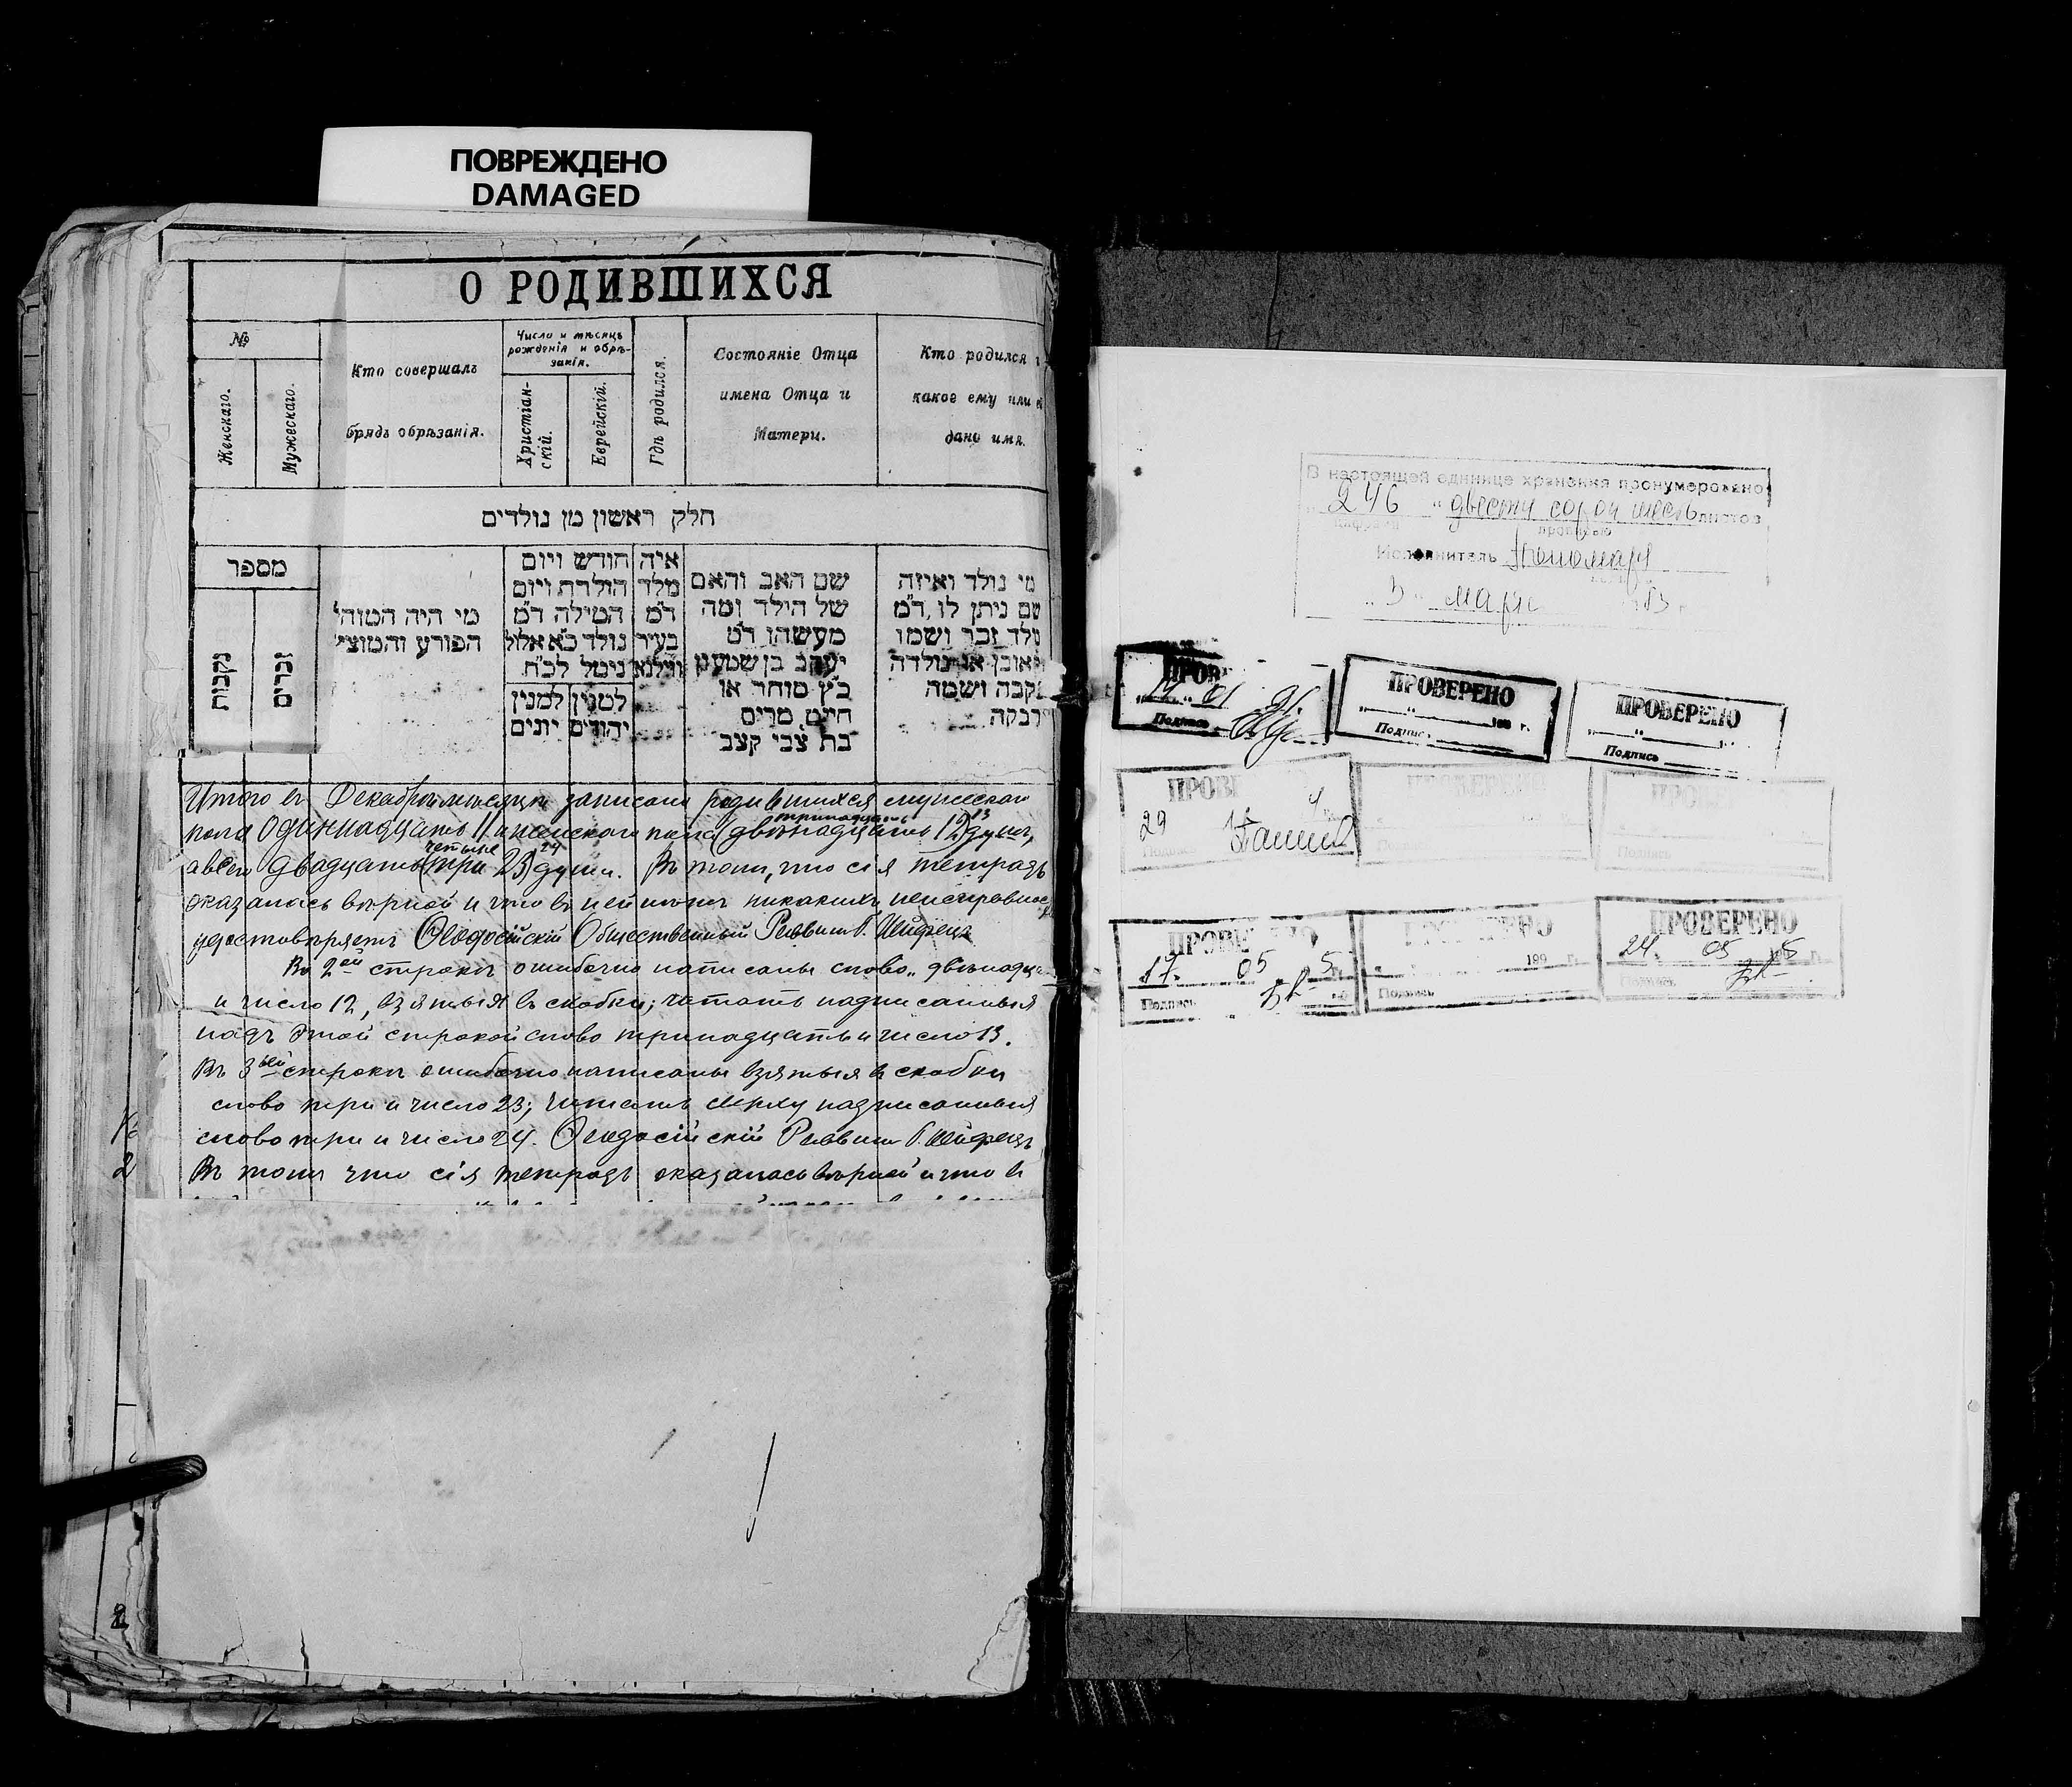 ПОВРЕЖДЕНО
DAMAGED
О РОДИВШИХСЯ
№
Женскаго.
Мужескаго.
Кто совершалъ
брядъ обрѣзанія.
Число и мѣсяцъ
рожденія и обрѣ-
занія.
Христіан-
скій.
Еврейскій.
Гдѣ родился.
Состояніе Отца
имена Отца и
Матери.
Кто родился
какое ему или
дано имя.
חלק ראשון מן נולדים
מספר
נקבות
זכרים
מי היה המוהל
הפורע והמוצץ
חודש ויום
הולדת ויום
המילה ד״מ
נולד כ״א אלול
נימל לכ״ח
למנין
יהודים
למנין
יונים
איה
מלד
ד״מ
בעיר
ווילנא
שם האב והאם
של הילד ומה
מעשהו ד״מ
יעקב בן שמעון
כ״ץ סוחר או
חייט, מרים
בת צבי קצב
מי נולד ואיזה
שם ניתן לו, ד״מ
נולד זכר ושמו
ראובן או נולדה
נקבה ושמה
רבקה.
Итого въ Декабрѣ мѣсяцѣ записано родившихся мужескаго
тринадцать 13
пола одиннадцать 11 и женскаго пола (двѣнадцать 12) душъ,
четыре 24
а всего двадцать (три 23) души. Въ томъ, что сія тетрадь
оказалась вѣрной и что въ ней нѣтъ никакихъ неисправнос
удостовѣряетъ Ѳеодосійскій Общественный Раввинъ Г. Шифрецъ
Въ 2ой строкѣ ошибочно написаны слово „двѣнадца
и число 12, взятыя въ скобки; читать надписанныя
надъ этой строкой слово тринадцать и число 13.
Въ 3ьей строкѣ ошибочно написаны взятыя въ скобки
слово три и число 23; читать сверху надписанныя
слово три и число 24. Ѳеодосійскій Раввинъ
Въ томъ что сія тетрадь оказалась вѣрной и что въ
2
2
В настоящей единице хранения пронумеровано
246 „двести сорок шесть листов
прописью
Исполнитель Пономар
марта
ПРОВ
01 91.
Подпись
ПРОВЕРЕНО
199 г.
Подпись
ПРОВЕРЕНО
Подпись
ПРОВЕ
29
Подпись
ПРОВЕРЕНО
ПРОВ
Подпись
ПРОВЕРЕНО
17. 05 5
Подпись
ПРОВЕРЕНО
199 г.
Подпись
ПРОВЕРЕНО
24. 05
Подпись